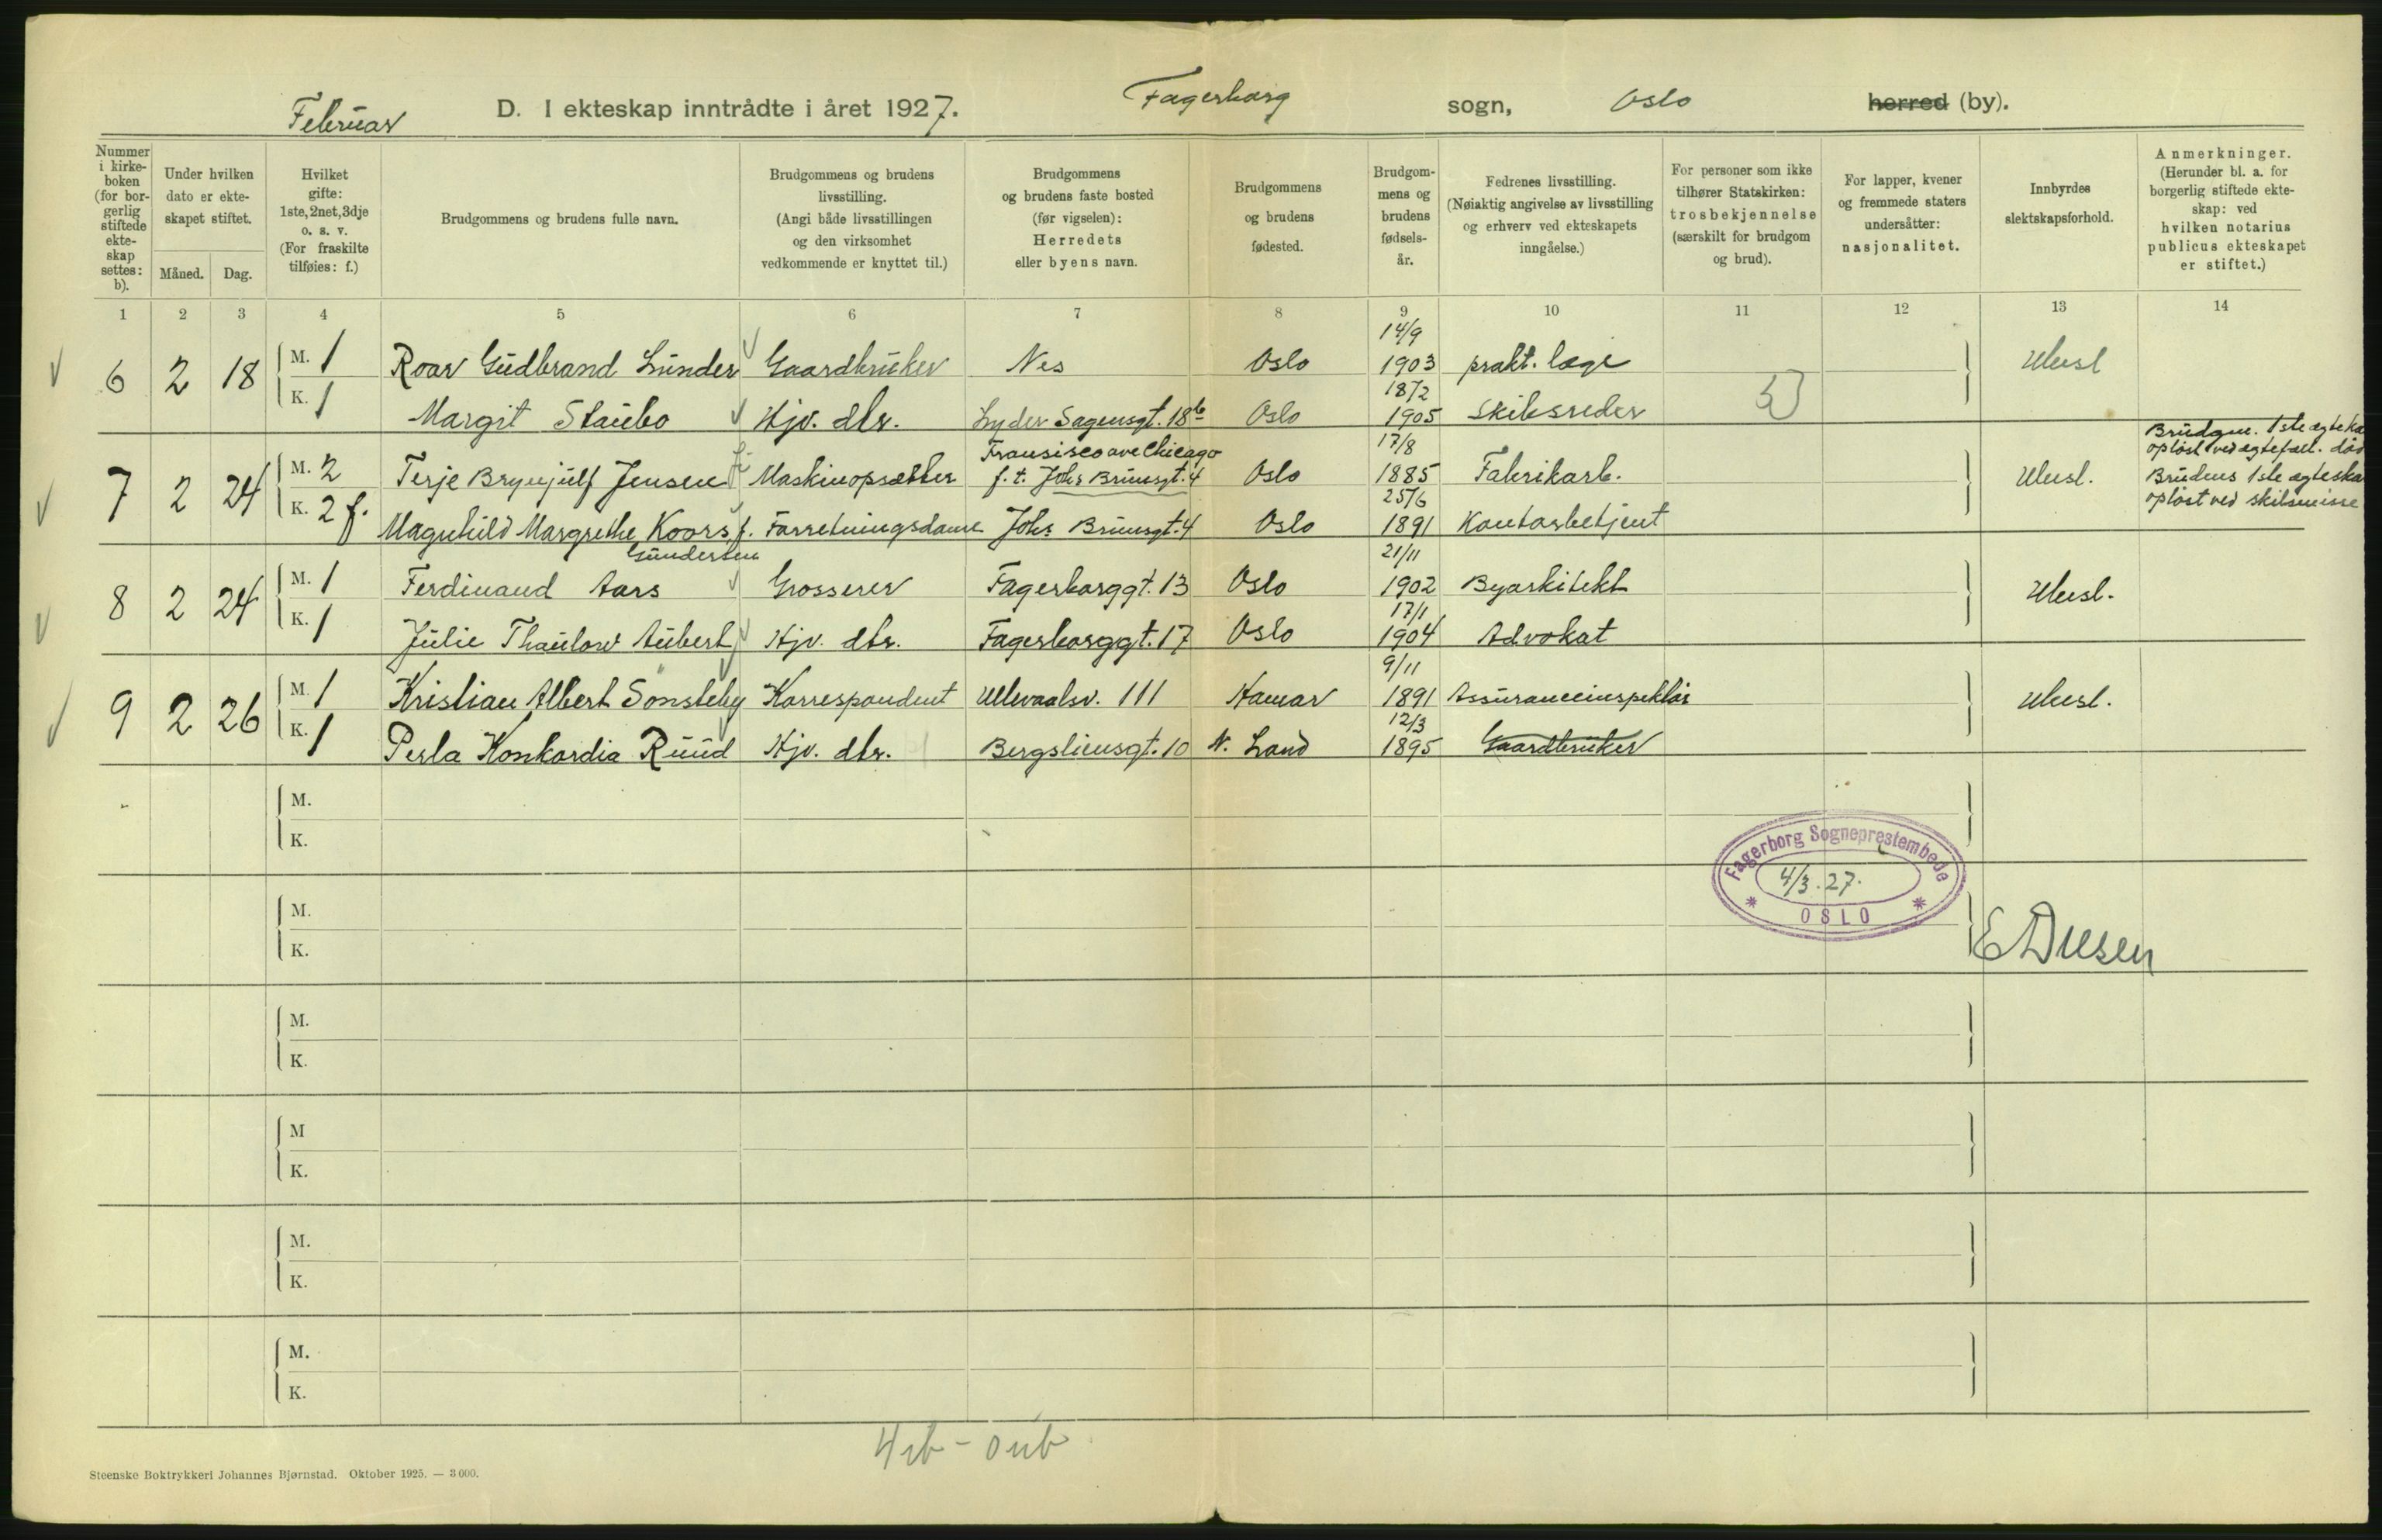 Februar D. I ekteskap inntrådte i året 1927. Fagerborg sogn, Oslo herred (by).
Nummer i kirke- boken (for bor- gerlig stiftede ekte- skap settes: b).
Under hvilken dato er ekte- skapet stiftet.
Måned. Dag.
Hvilket gifte: 1ste, 2net, 3dje o. s. v. (For fraskilte tilføies: f.)
Brudgommens og brudens fulle navn.
Brudgommens og brudens livsstilling. (Angi både livsstillingen og den virksomhet vedkommende er knyttet til.)
Brudgommens og brudens faste bosted (før vigselen): Herredets eller byens navn.
Brudgommens og brudens fødested.
Brudgom- mens og brudens fødsels- år.
Fedrenes livsstilling. (Nøiaktig angivelse av livsstilling og erhverv ved ekteskapets inngåelse.)
For personer som ikke tilhører Statskirken: trosbekjennelse (særskilt for brudgom og brud).
For lapper, kvener og fremmede staters undersåtter: nasjonalitet.
Innbyrdes slektskapsforhold.
Anmerkninger. (Herunder bl. a. for borgerlig stiftede ekte- skap: ved hvilken notarius publicus ekteskapet er stiftet.)
1 2 3 4 5 6 7 8 9 10 11 12 13 14
6 2 18 M. 1 Roar Gudbrand Lunder Gaardbruker Nes Oslo 14/9 1903 prakt. læge Ubesl
K. 1 Margit Staubo Hjv. dtr. Lyder Sagensgt. 18b Oslo 18/2 1905 Skibsreder
7 2 24 M. 2 Terje Brynjulf Jensen Maskinopsætter Fransisco ave Chicago f. t. Johs Brunsgt. 4 Oslo 17/8 1885 Fabrikarb. Ubesl.
Brudgm. 1ste ægteska
opløst ved ægtefæll. død
Brudens 1ste ægteska
opløst ved skilsmisse
K. 2 f. Magnhild Margrethe Koors, f. Gundersen Forretningsdame Johs Brunsgt. 4 Oslo 25/6 1891 Kontorbetjent
8 2 24 M. 1 Ferdinand Aars Grosserer Fagerborggt. 13 Oslo 21/11 1902 Byarkitekt Ubesl.
K. 1 Julie Thaulow Aubert Hjv. dtr. Fagerborggt. 17 Oslo 17/1 1904 Advokat
9 2 26 M. 1 Kristian Albert Sønsteby Korrespondent Ullevaalsv. 111 Hamar 9/11 1891 Assuranceinspektør Ubesl.
K. 1 Perla Konkordia Ruud Hjv. dtr. Bergsliensgt. 10 N. Land 12/3 1895 Gaardbruker
M.
K.
Fagerborg Sogneprestembede
4/3.27.
OSLO
M.
K.
M.
K.
M
K.
M.
K.
M.
K.
Steenske Boktrykkeri Johannes Bjørnstad. Oktober 1925. — 3 000.